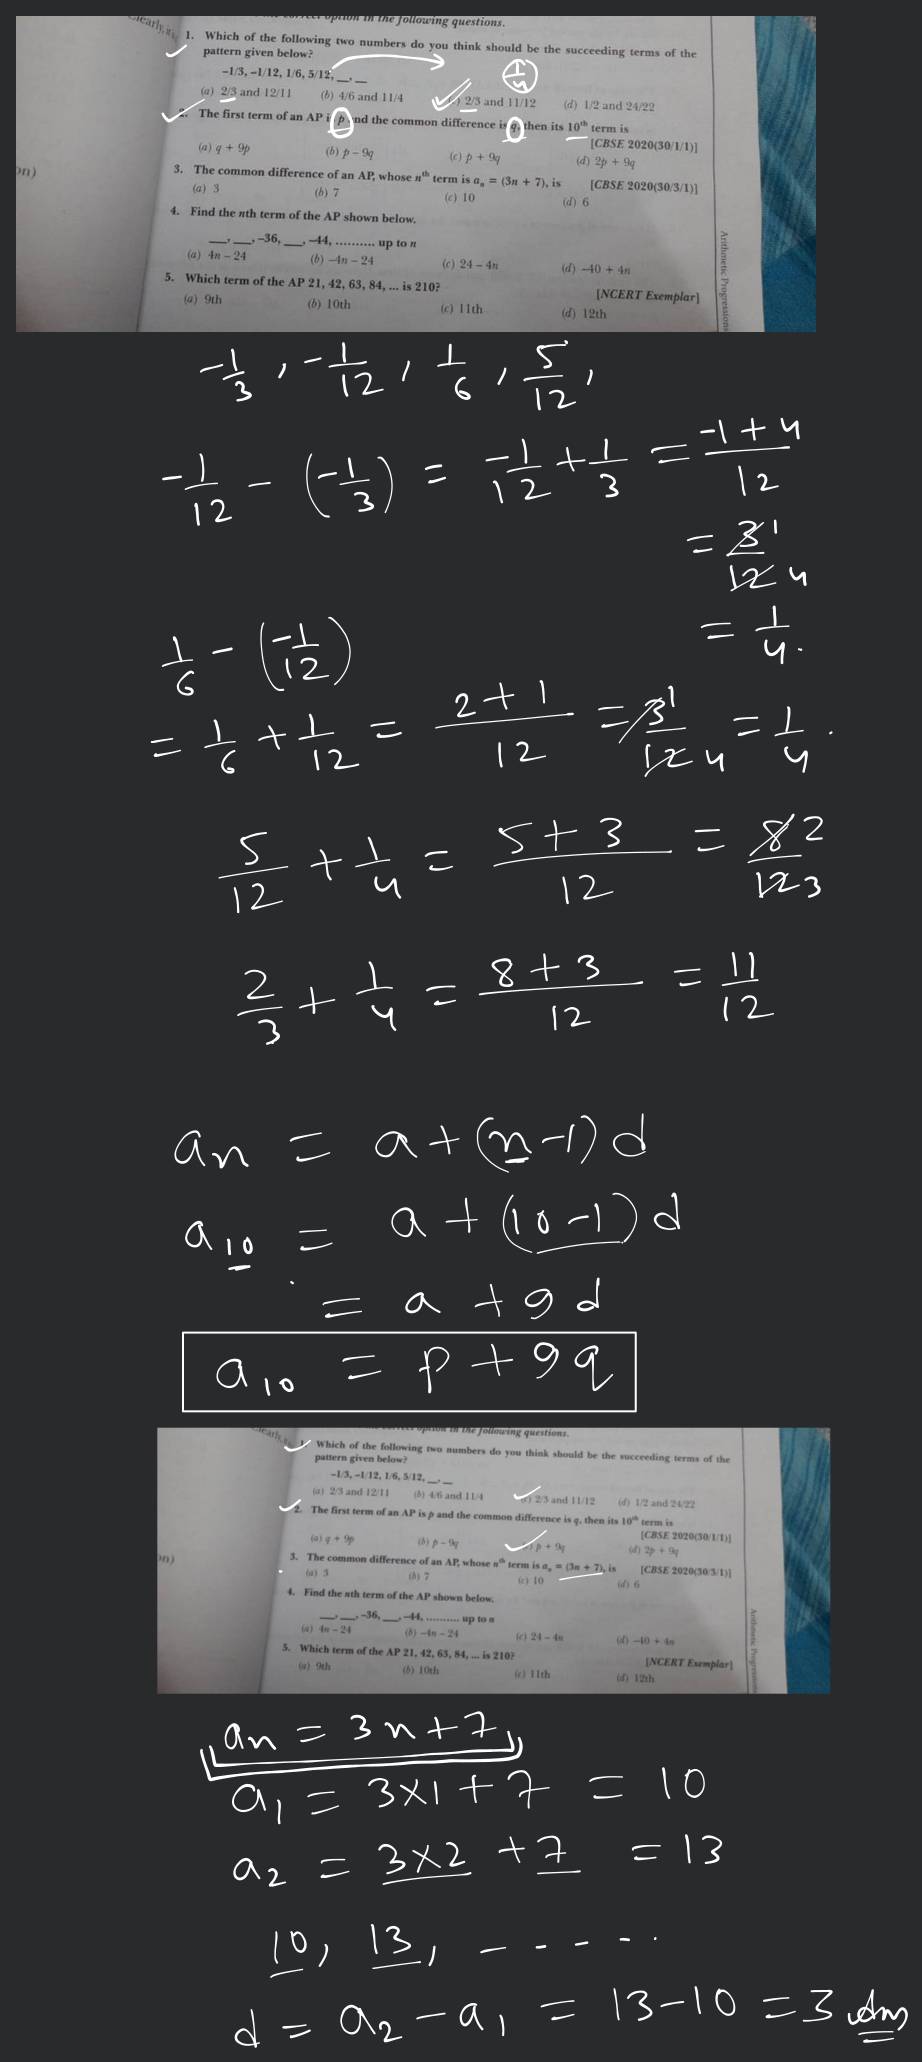 Clearly, it
correct option in the following questions.
1. Which of the following two numbers do you think should be the succeeding terms of the
pattern given below?
–1/3, –1/12, 1/6, 5/12, __, __
1/4
(a) 2/3 and 12/11 (b) 4/6 and 11/4 2/3 and 11/12 (d) 1/2 and 24/22
2. The first term of an AP is p and the common difference is q, then its 10th term is
[CBSE 2020(30/1/1)]
(a) q + 9p (b) p – 9q (c) p + 9q (d) 2p + 9q
on)
3. The common difference of an AP, whose nth term is aₙ = (3n + 7), is [CBSE 2020(30/3/1)]
(a) 3 (b) 7 (c) 10 (d) 6
4. Find the nth term of the AP shown below.
__, __, –36, __, –44, .......... up to n
(a) 4n – 24 (b) –4n – 24 (c) 24 – 4n (d) –40 + 4n
5. Which term of the AP 21, 42, 63, 84, ... is 210? [NCERT Exemplar]
(a) 9th (b) 10th (c) 11th (d) 12th
Arithmetic Progressions
-1/3, -1/12, 1/6, 5/12,
-1/12 - (-1/3) = -1/12 + 1/3 = (-1+4)/12
= 3/12 1/4
= 1/4.
1/6 - (-1/12)
= 1/6 + 1/12 = (2+1)/12 = 3/12 1/4 = 1/4.
5/12 + 1/4 = (5+3)/12 = 8/12 2/3
2/3 + 1/4 = (8+3)/12 = 11/12
an = a+(n-1)d
a10 = a+(10-1)d
= a + 9d
a10 = p+9q
Clearly, it
correct option in the following questions.
1. Which of the following two numbers do you think should be the succeeding terms of the
pattern given below?
–1/3, –1/12, 1/6, 5/12, __, __
(a) 2/3 and 12/11 (b) 4/6 and 11/4 2/3 and 11/12 (d) 1/2 and 24/22
2. The first term of an AP is p and the common difference is q, then its 10th term is
[CBSE 2020(30/1/1)]
(a) q + 9p (b) p – 9q p + 9q (d) 2p + 9q
on)
3. The common difference of an AP, whose nth term is aₙ = (3n + 7), is [CBSE 2020(30/3/1)]
(a) 3 (b) 7 (c) 10 (d) 6
4. Find the nth term of the AP shown below.
__, __, –36, __, –44, .......... up to n
(a) 4n – 24 (b) –4n – 24 (c) 24 – 4n (d) –40 + 4n
5. Which term of the AP 21, 42, 63, 84, ... is 210? [NCERT Exemplar]
(a) 9th (b) 10th (c) 11th (d) 12th
Arithmetic Progressions
an = 3n+7
a1 = 3×1+7 = 10
a2 = 3×2 +7 = 13
10, 13, - - - - -.
d = a2-a1 = 13-10 = 3 Ans